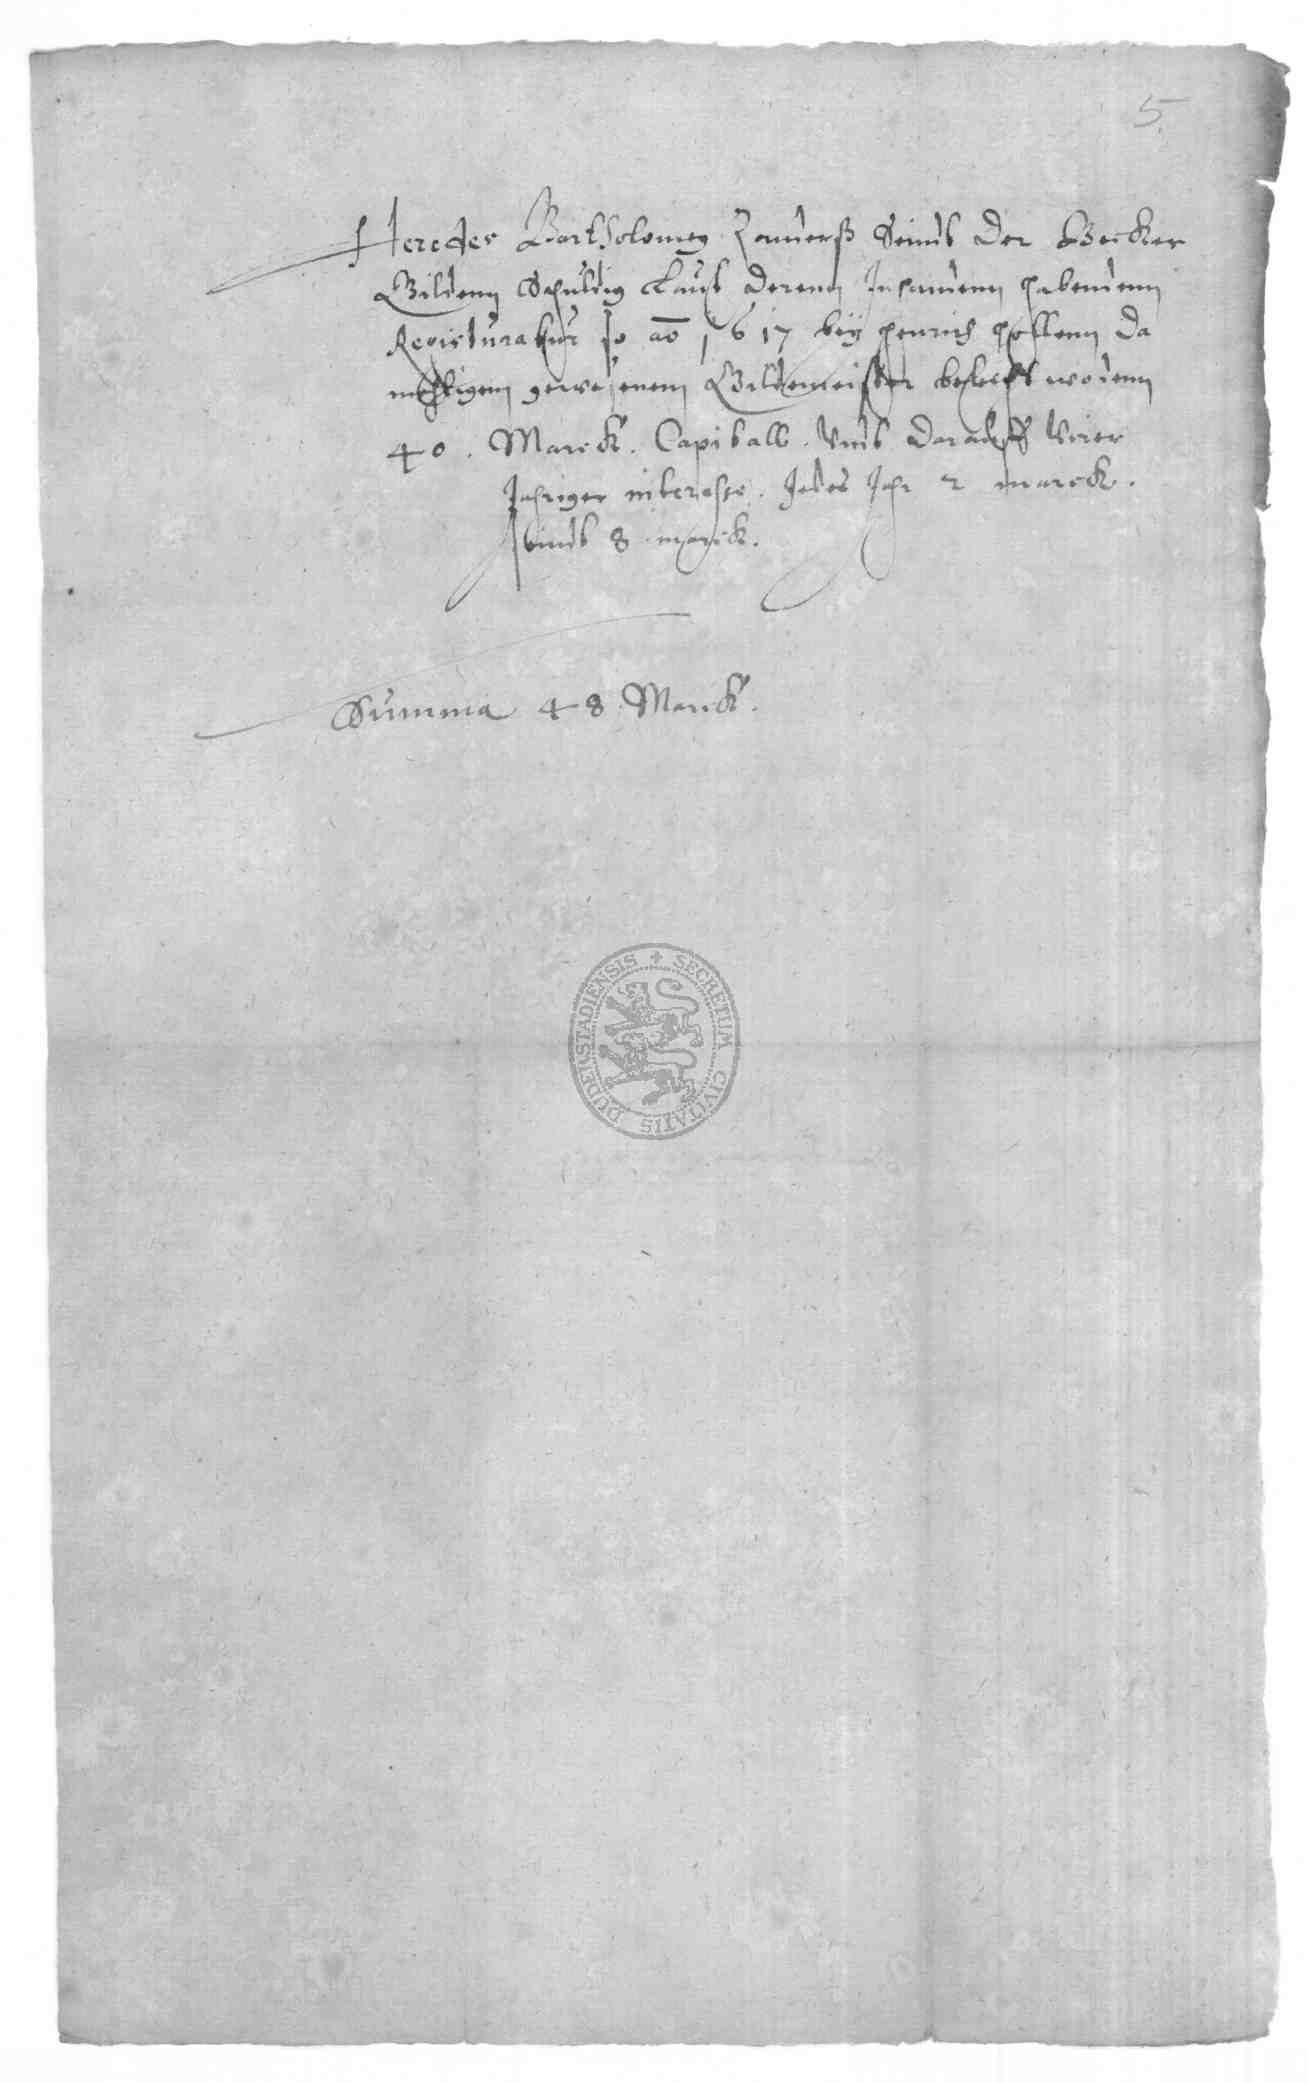 5.
Heredes Bartholomey Zanderß Seindt der Becker
Gildenn Schuldig Laut derenn Inhandenn habendenn
Registuratur so ao 1617 bey Henrich Hollenn da
mahligenn gewesenem Gildemeister worden
40. Marck. Capitall. Vndt darauff Vierer
Jahriger interesse. Jedes Jahr 2 marck.
seindt 8 marck.
Summa 48 Marck.
SECRETUM CIVITATIS DUDERSTADIENSIS